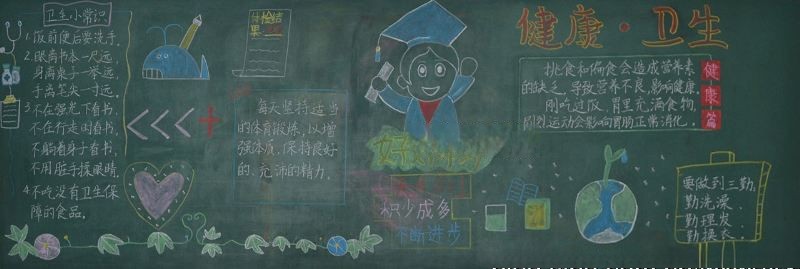 卫生小常识
1.饭前便后要洗手。
2.眼离书本一尺远，
身离桌子一拳远，
手离笔尖一寸远。
3.不在强光下看书，
不在行走时看书，
不躺着身子看书，
不用脏手揉眼睛。
4.不吃没有卫生保
障的食品。
体检结果
每天坚持适当
的体育锻炼，以增
强体质，保持良好
的、充沛的精力。
好
积少成多
不断进步
健康·卫生
挑食和偏食会造成营养素
的缺乏，导致营养不良，影响健康。
刚吃过饭，胃里充满食物，
剧烈运动会影响胃肠正常消化。
健
康
篇
要做到三勤：
勤洗澡、
勤理发、
勤换衣。